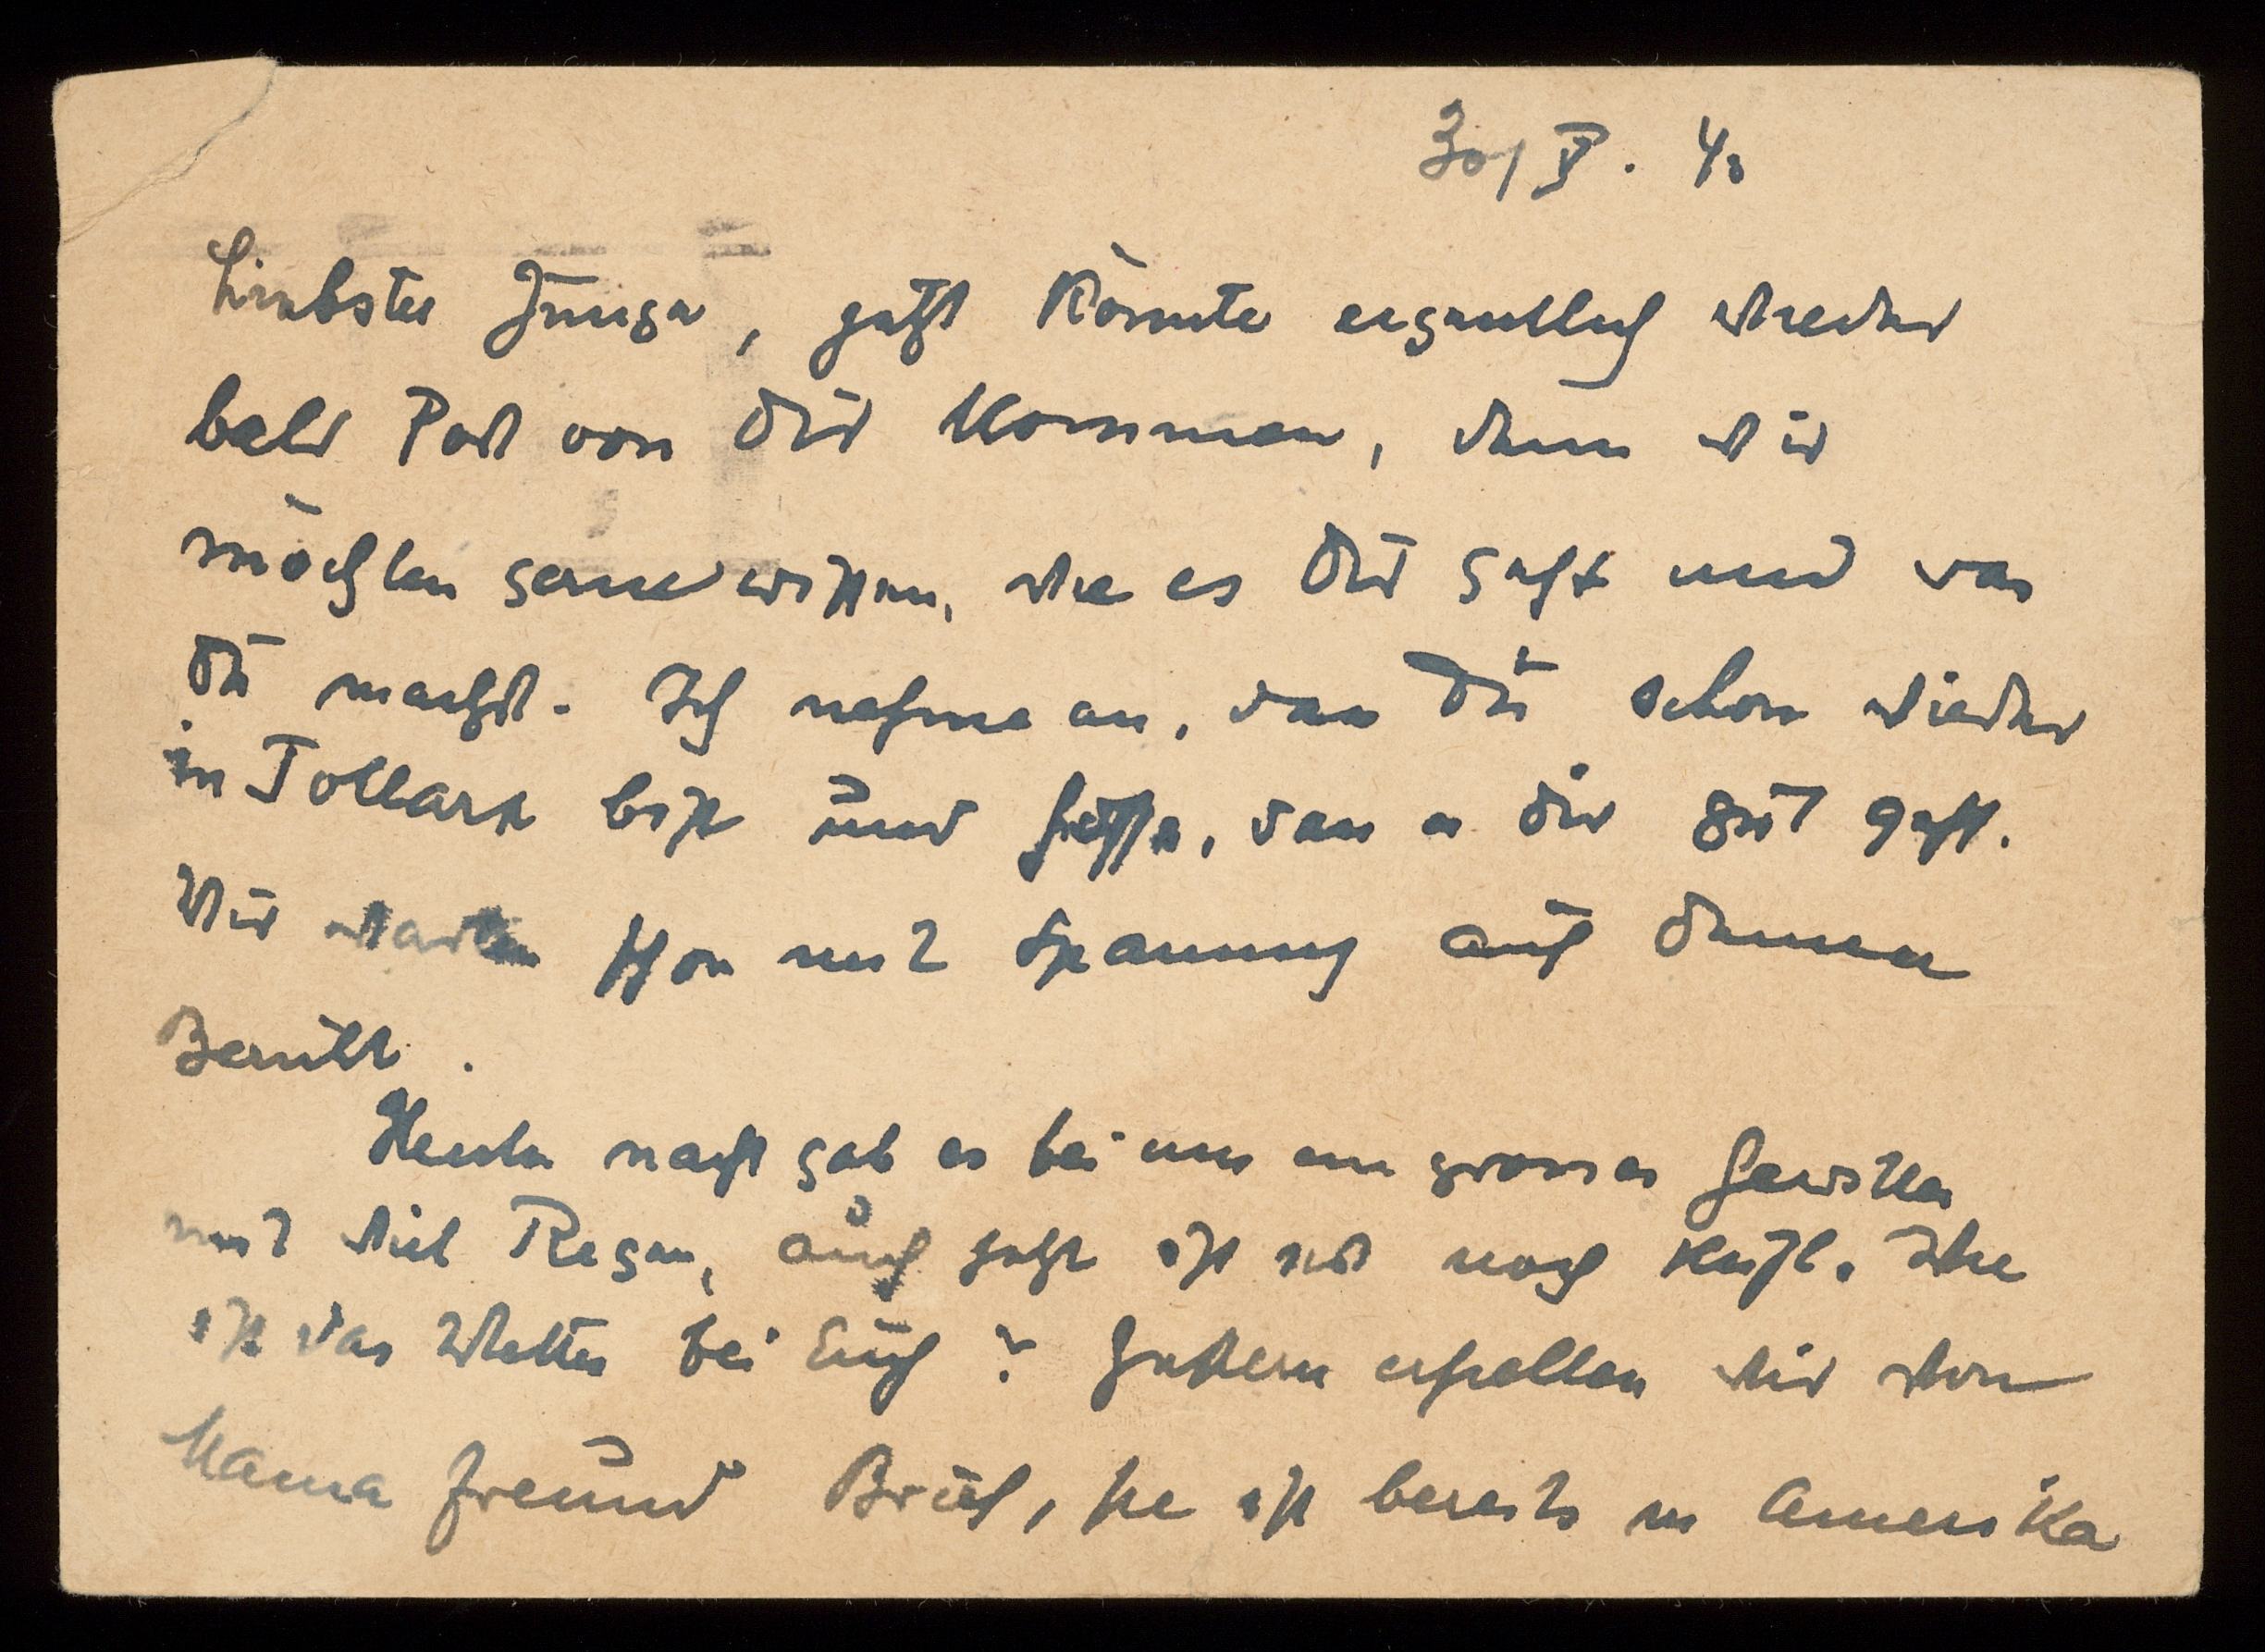 30/V. 40
Liebster Junge, jetzt könnte eigentlich wieder
bald Post von Dir kommen, denn wir
möchten gerne wissen, wie es Dir geht und was
Du machst. Ich nehme an, dass Du schon wieder
in Tollarp bist und hoffe, dass es Dir gut geht.
Wir warten schon mit Spannung auf Deinen
Bericht.
Heute nacht gab es bei uns ein grosses Gewitter
mit viel Regen, auch jetzt ist es noch kühl. Wie
ist das Wetter bei Euch? Gestern erhielten wir von
Mama Freund Brief, sie ist bereits in Amerika